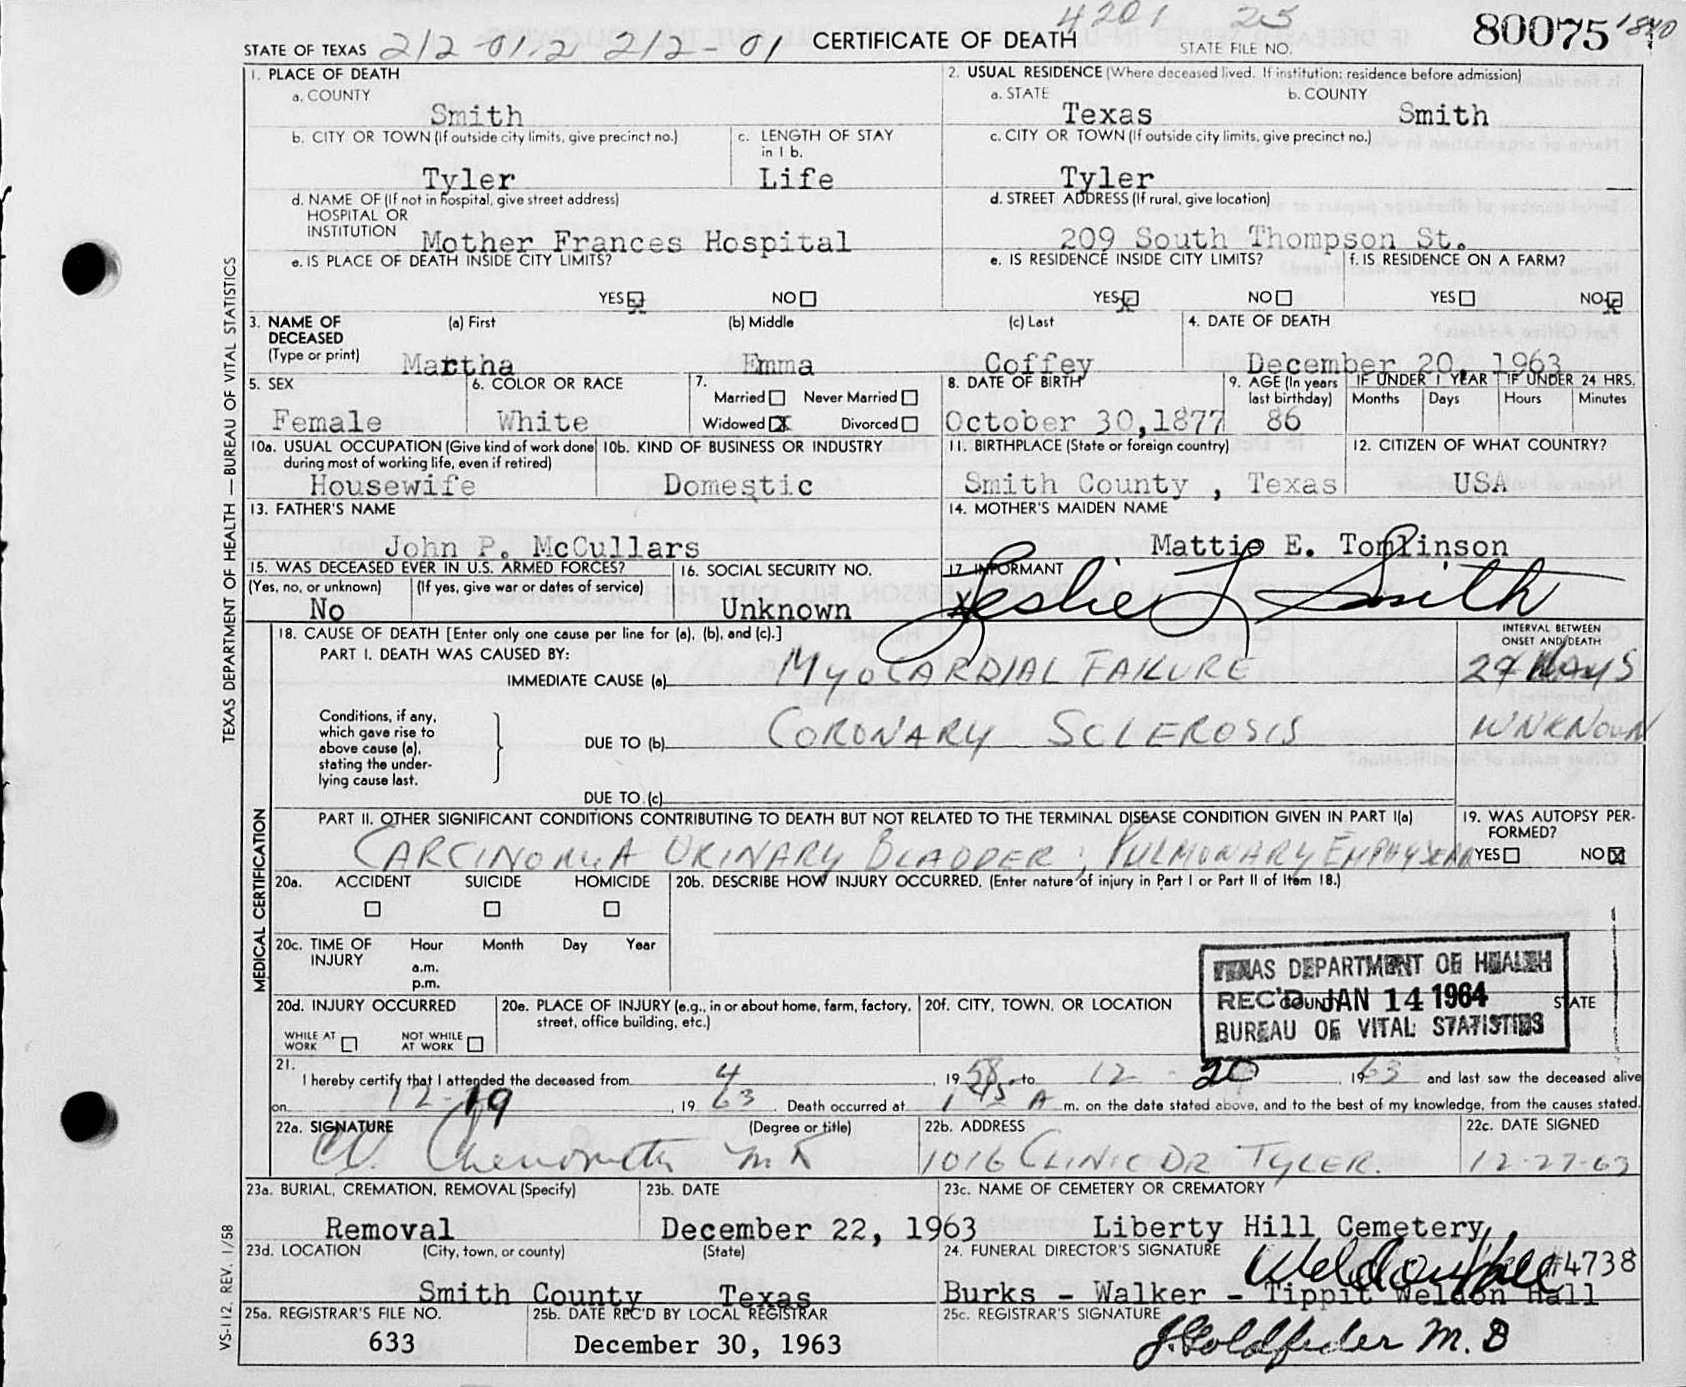 4201 25
STATE OF TEXAS 212-01.2 212-01 CERTIFICATE OF DEATH STATE FILE NO. 80075 1840
1. PLACE OF DEATH
a. COUNTY
Smith
2. USUAL RESIDENCE (Where deceased lived. If institution: residence before admission)
a. STATE b. COUNTY
Texas Smith
b. CITY OR TOWN (If outside city limits, give precinct no.)
Tyler
c. LENGTH OF STAY
in 1 b.
Life
c. CITY OR TOWN (If outside city limits, give precinct no.)
Tyler
d. NAME OF (If not in hospital, give street address)
HOSPITAL OR
INSTITUTION Mother Frances Hospital
d. STREET ADDRESS (If rural, give location)
209 South Thompson St.
e. IS PLACE OF DEATH INSIDE CITY LIMITS?
YES NO
e. IS RESIDENCE INSIDE CITY LIMITS?
YES NO
f. IS RESIDENCE ON A FARM?
YES NO
3. NAME OF
DECEASED
(Type or print)
(a) First (b) Middle (c) Last
Martha Emma Coffey
4. DATE OF DEATH
December 20, 1963
5. SEX
Female
6. COLOR OR RACE
White
7.
Married Never Married
Widowed X Divorced
8. DATE OF BIRTH
October 30,1877
9. AGE (In years
last birthday)
86
IF UNDER 1 YEAR
Months Days
IF UNDER 24 HRS.
Hours Minutes
10a. USUAL OCCUPATION (Give kind of work done
during most of working life, even if retired)
Housewife
10b. KIND OF BUSINESS OR INDUSTRY
Domestic
11. BIRTHPLACE (State or foreign country)
Smith County , Texas
12. CITIZEN OF WHAT COUNTRY?
USA
13. FATHER'S NAME
John P. McCullars
14. MOTHER'S MAIDEN NAME
Mattie E. Tomlinson
15. WAS DECEASED EVER IN U.S. ARMED FORCES?
(Yes, no, or unknown) (If yes, give war or dates of service)
No
16. SOCIAL SECURITY NO.
Unknown
17. INFORMANT
X Leslie L Smith
18. CAUSE OF DEATH [Enter only one cause per line for (a), (b), and (c).]
INTERVAL BETWEEN
ONSET AND DEATH
PART I. DEATH WAS CAUSED BY:
IMMEDIATE CAUSE (a) MYOCARDIAL FAILURE
Conditions, if any,
which gave rise to
above cause (a),
stating the under-
lying cause last.
DUE TO (b) CORONARY SCLEROSIS UNKNOWN
DUE TO (c)
PART II. OTHER SIGNIFICANT CONDITIONS CONTRIBUTING TO DEATH BUT NOT RELATED TO THE TERMINAL DISEASE CONDITION GIVEN IN PART I(a)
CARCINOMA URINARY BLADDER; PULMONARY EMPHYSEMA
19. WAS AUTOPSY PER-
FORMED?
YES NO X
20a. ACCIDENT SUICIDE HOMICIDE
20b. DESCRIBE HOW INJURY OCCURRED. (Enter nature of injury in Part I or Part II of Item 18.)
20c. TIME OF
INJURY
Hour Month Day Year
a.m.
p.m.
20d. INJURY OCCURRED
WHILE AT
WORK
NOT WHILE
AT WORK
20e. PLACE OF INJURY (e.g., in or about home, farm, factory,
street, office building, etc.)
20f. CITY, TOWN, OR LOCATION COUNTY STATE
TEXAS DEPARTMENT OF HEALTH
REC'D JAN 14 1964
BUREAU OF VITAL STATISTICS
21.
I hereby certify that I attended the deceased from 4, 1958, to 12 - 20, 1963 and last saw the deceased alive
on 12-19, 1963. Death occurred at 1 45 A m. on the date stated above, and to the best of my knowledge, from the causes stated.
22a. SIGNATURE (Degree or title)
22b. ADDRESS
1016 CLINIC DR TYLER.
22c. DATE SIGNED
12-27-63
23a. BURIAL, CREMATION, REMOVAL (Specify)
Removal
23b. DATE
December 22, 1963
23c. NAME OF CEMETERY OR CREMATORY
Liberty Hill Cemetery,
23d. LOCATION (City, town, or county) (State)
Smith County Texas
24. FUNERAL DIRECTOR'S SIGNATURE
Weldon Hall #4738
Burks - Walker - Tippit Weldon Hall
25a. REGISTRAR'S FILE NO.
633
25b. DATE REC'D BY LOCAL REGISTRAR
December 30, 1963
25c. REGISTRAR'S SIGNATURE
J. Goldfeder M.D
TEXAS DEPARTMENT OF HEALTH — BUREAU OF VITAL STATISTICS
MEDICAL CERTIFICATION
VS-112, REV. 1/58